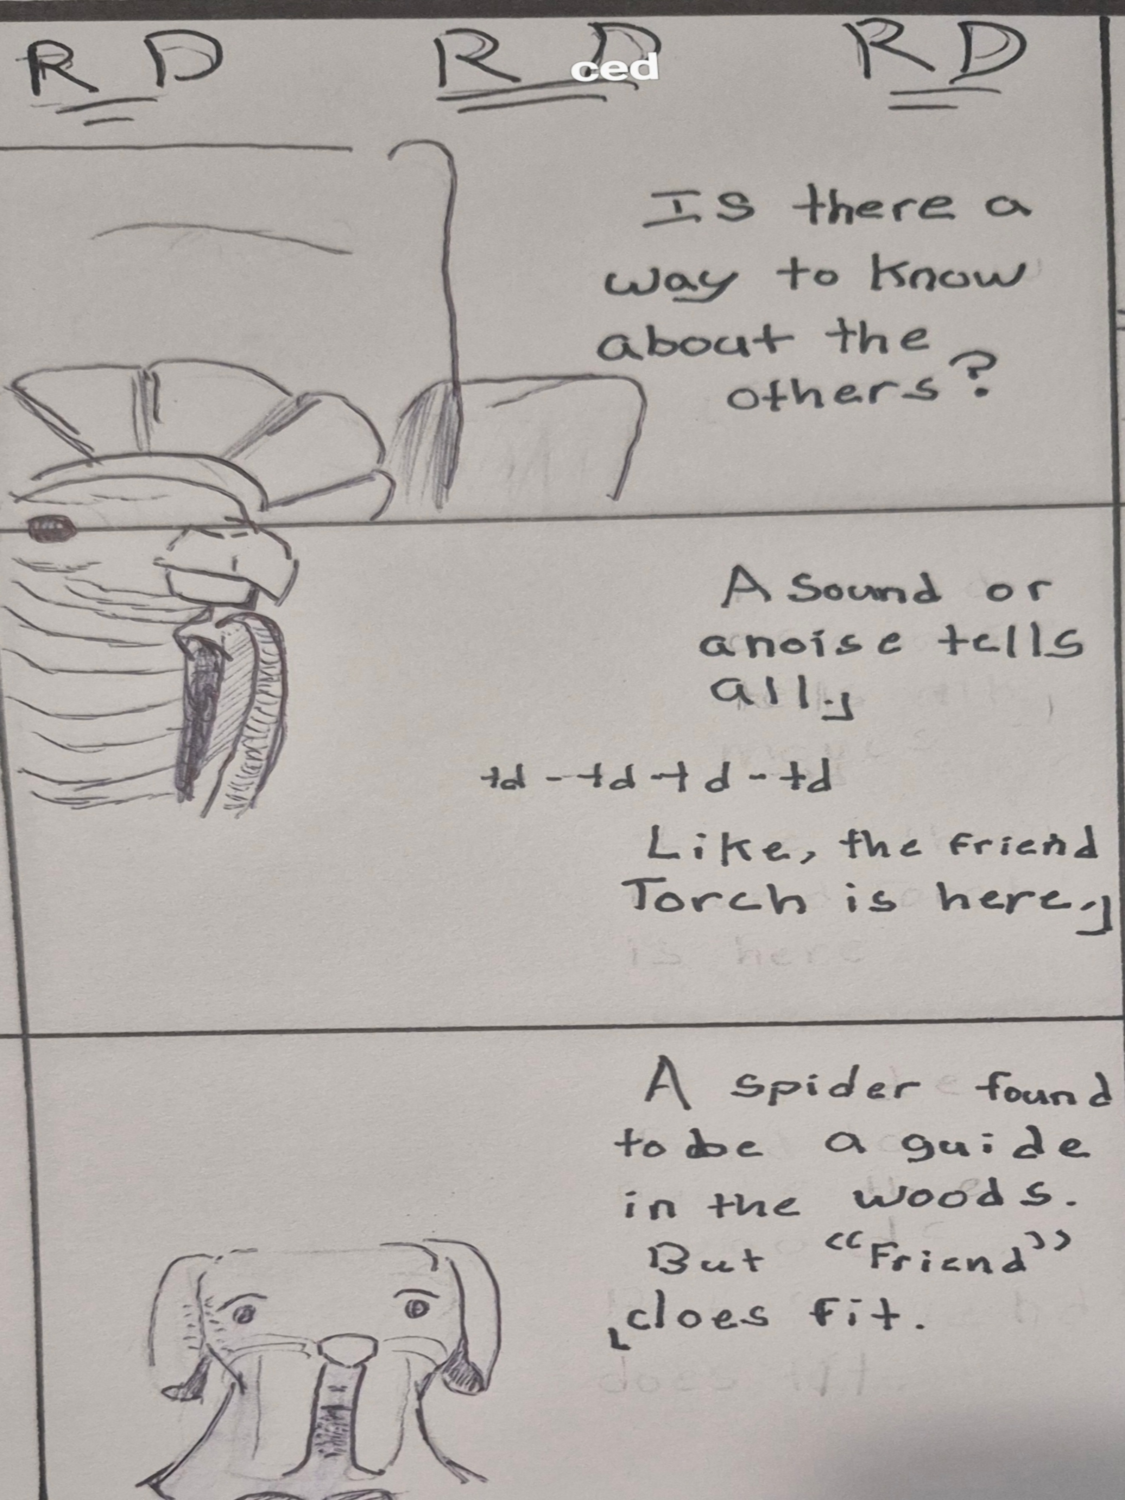 R D
R D
ced
R D
Is there a
way to know
about the
others?
A sound or
a noise tells
all
td - td - td - td
Like, the friend
Torch is here.
is here
A spider found
to be a guide
in the woods.
But "Friend"
does fit.